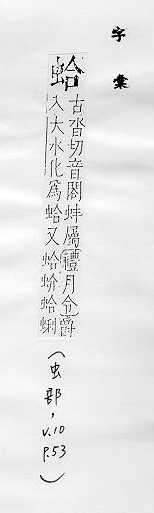 字彙
蛤
古沓切音閤蚌屬禮月令爵
入大水化為蛤又蛤蚧蛤蜊
(虫部,
V.10
P.53)